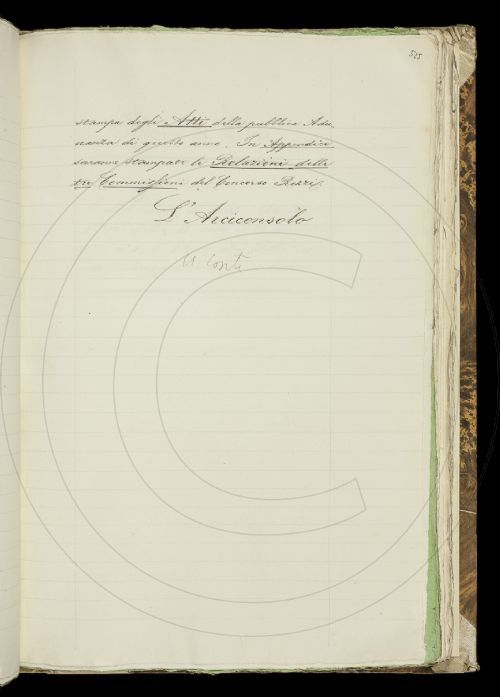 525
stampa degli Atti della pubblica Adu-
nanza di questo anno. In Appendice
saranno stampate le Relazioni delle
tre Commissioni del Concorso Rezzi.
L'Arciconsolo
A. Conti